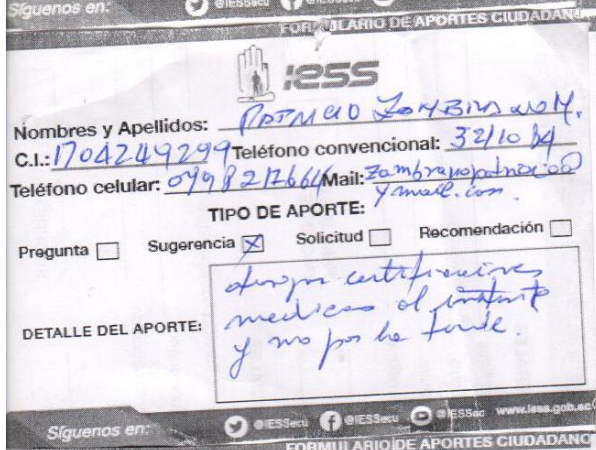 Síguenos en: @IESSecu @IESSecu @IESSec
FORMULARIO DE APORTES CIUDADANO
IESS
Nombres y Apellidos: PATRICIO ZAMBRANO M.
C.I.: 1704249299 Teléfono convencional:
Teléfono celular: Mail: zambranopatricio@
ymail.com
TIPO DE APORTE:
Pregunta Sugerencia X Solicitud Recomendación
certificaciones
DETALLE DEL APORTE: medicas al instante
y no por la tarde.
Síguenos en: @IESSecu @IESSecu @IESSec www.iess.gob.ec
FORMULARIO DE APORTES CIUDADANO